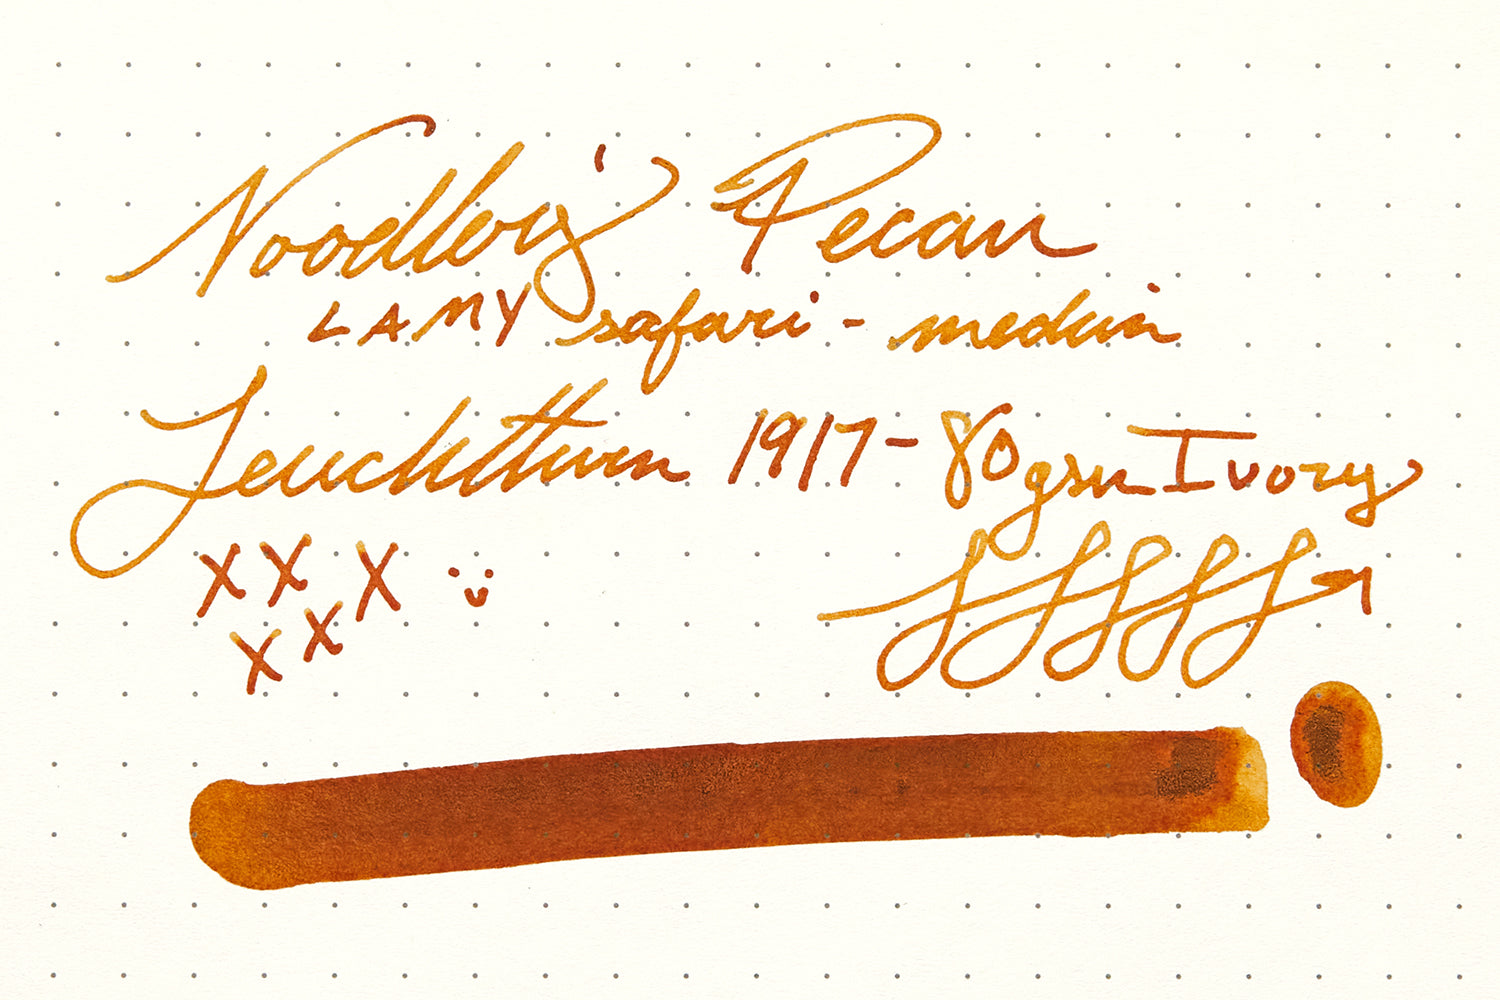 Noodler's Pecan
LAMY safari - medium
Leuchtturm 1917 - 80gsm Ivory
X X X
X X